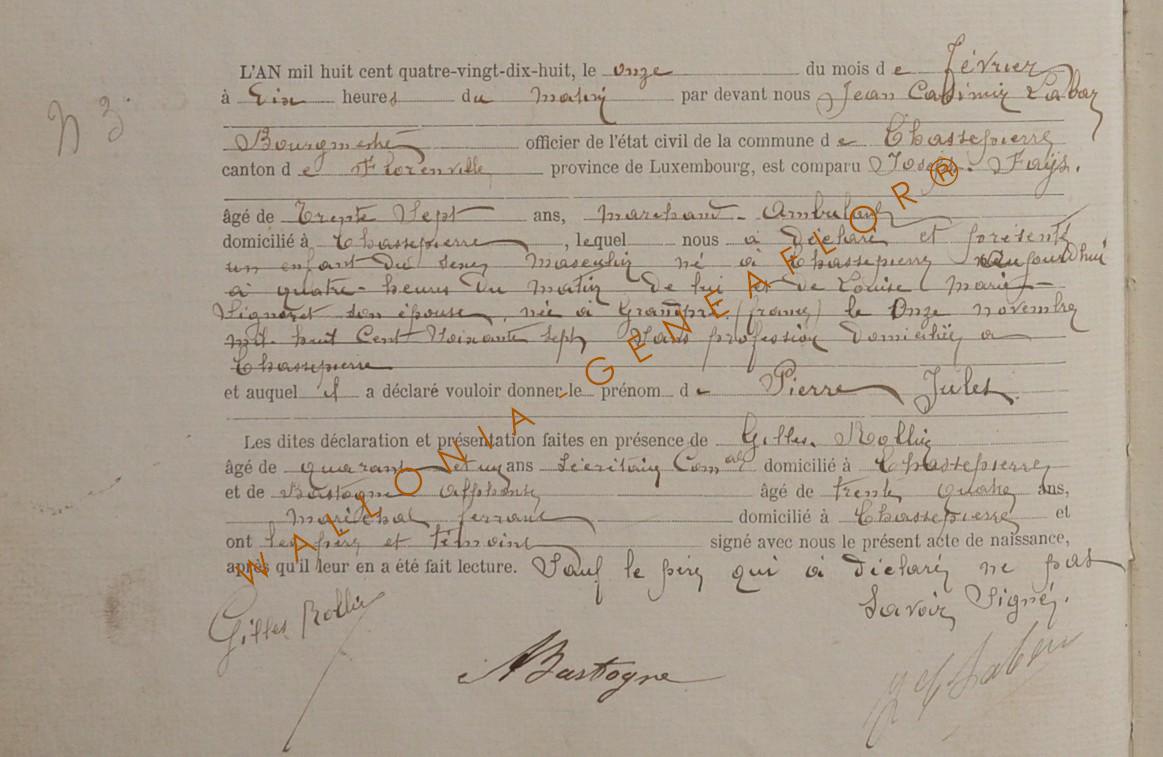 N 3.
L'AN mil huit cent quatre-vingt-dix-huit, le onze du mois d e février
à Dix heures du matin par devant nous Jean Casimir
Bourgmestre officier de l'état civil de la commune d e Chassepierre
canton d e Florenville province de Luxembourg, est comparu Joseph. Fays.
âgé de trente sept ans, marchand - ambulant
domicilié à Chassepierre, lequel nous a déclaré et présenté
un enfant du sexe masculin né à Chassepierre aujourd'hui
à quatre - heures du matin de lui et de Louise Marie
Signoret son épouse, née à Grandpré (france) le Onze novembre
mil huit Cent Soixante sept, Sans profession domiciliée a
Chassepierre
et auquel il a déclaré vouloir donner le prénom d e Pierre Jules.
Les dites déclaration et présentation faites en présence de Gilles. Rollin
âgé de quarante et un ans Secrétaire Com al domicilié à Chassepierre
et de Bastogne Alphonse âgé de trente quatre ans,
Maréchal ferrant domicilié à Chassepierre et
ont les père et témoins signé avec nous le présent acte de naissance,
après qu'il leur en a été fait lecture. Sauf le père qui a déclaré ne pas
Savoir Signé.
Gilles Rollin
ABastogne
WALLONIA - GENEAFLOR®